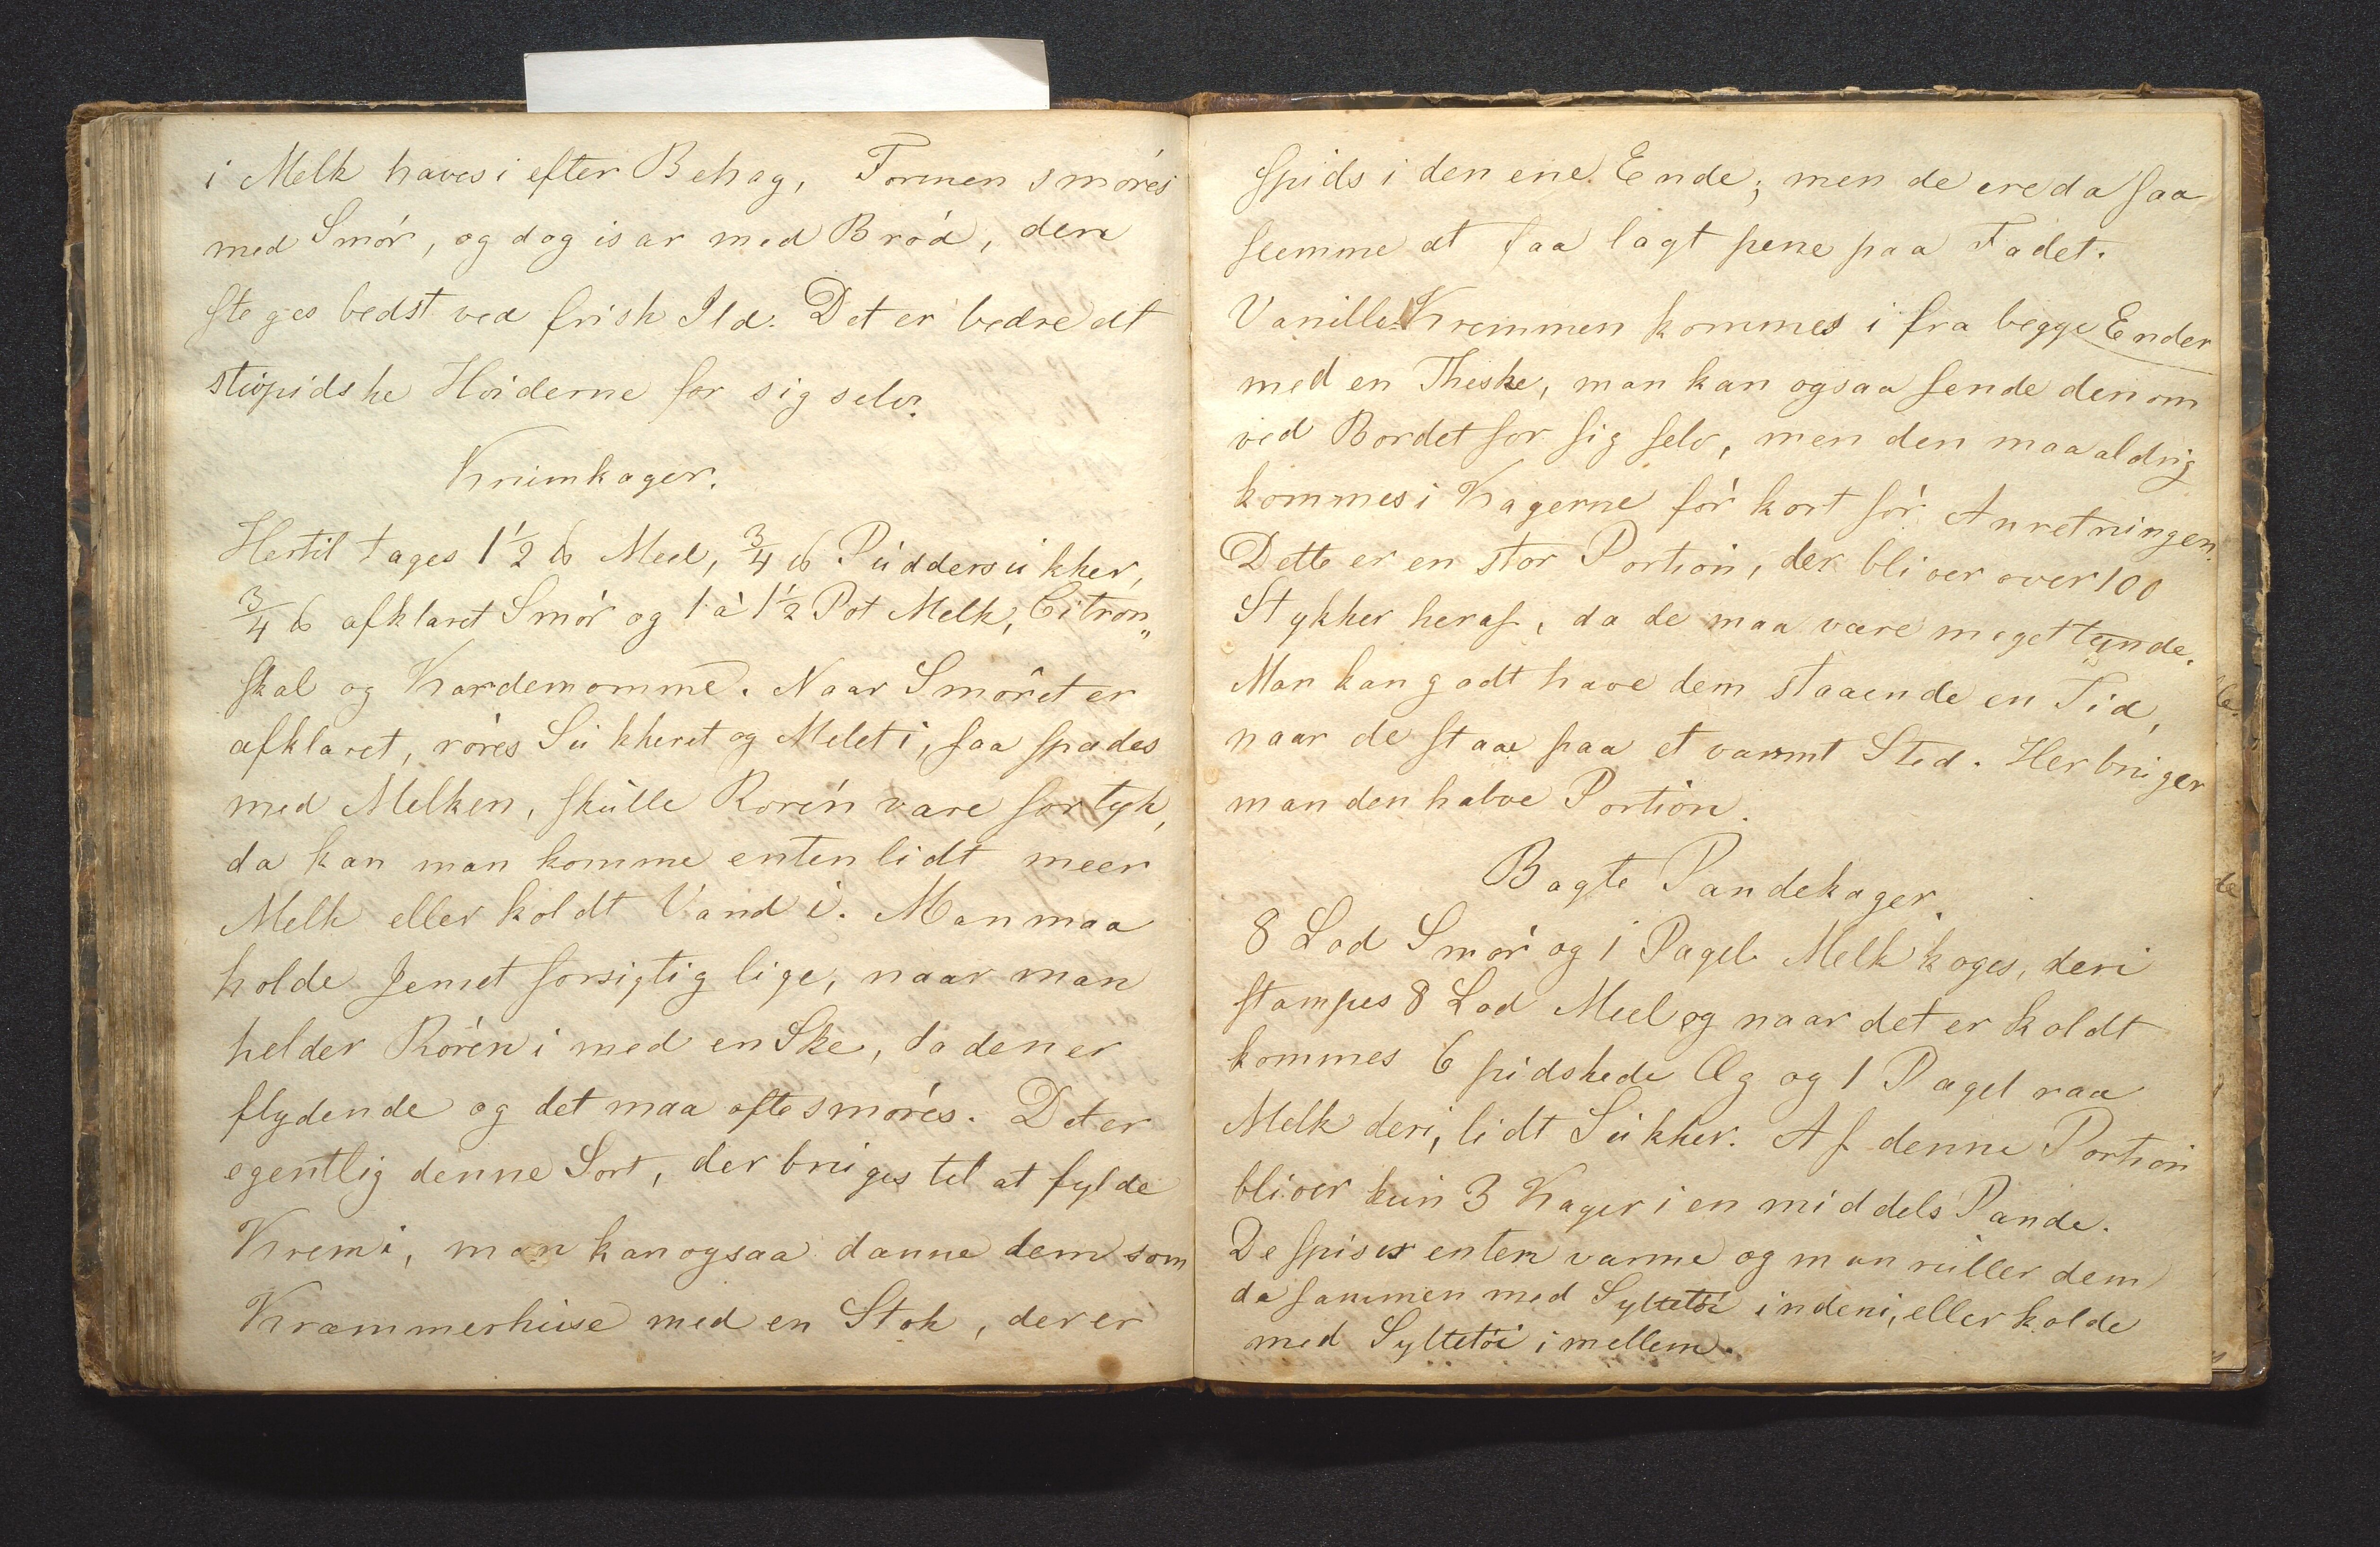 i Melk haves i efter Behag, Formen smøres
med Smør, og dog isar med Brød, den
steges bedst ved frisk Ild. Det er bedre at
stivpidske Hviderne for sig selv.
Krumkager.
Hertil tages 1½ ℔ Meel, ¾ ℔ Puddersukker,
¾ ℔ afklaret Smør og 1 à 1½ Pot Melk, Citron„
skal og Kardemomme. Naar Smøret er
afklaret, røres Sukkeret og Melet i, saa spædes
med Melken, skulle Røren være for tyk,
da kan man komme enten lidt meer
Melk eller koldt Vand i. Man maa
holde Jernet forsigtig lige, naar man
helder Røren i med en Ske, da den er
flydende og det maa ofte smøres. Det er
egentlig denne Sort, der bruges til at fylde
Krem i, man kan ogsaa danne dem som
Kræmmerhuse med en Stok, der er
spids i den ene Ende; men de ere da saa
slemme at faa lagt pene paa Fadet.
Vanille Kremmen kommes i fra begge Ender
med en Theske, man kan ogsaa sende den om
ved Bordet for sig selv, men den maa aldrig
kommes i Kagerne før kort før Anretningen.
Dette er en stor Portion, der bliver over 100
Stykker heraf, da de maa være meget tynde.
Man kan godt have dem staaende en Tid,
naar de staae paa et varmt Sted. Her bruger
man den halve Portion.
Bagte Pandekager.
8 Lod Smør og 1 Pagel Melk koges, deri
stampes 8 Lod Meel og naar det er koldt
kommes 6 pidskede Æg og 1 Pagel raa
Melk deri, lidt Sukker. Af denne Portion
bliver kun 3 Kager i en middels Pande.
De spises enten varme og man ruller dem
da sammen med Syltetøi indeni, eller kolde
med Syltetøi imellem.